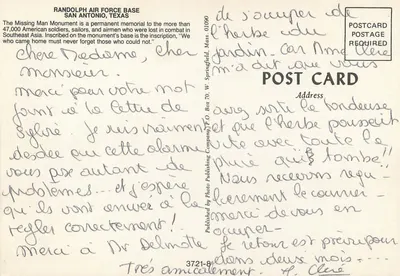 RANDOLPH AIR FORCE BASE
SAN ANTONIO, TEXAS
The Missing Man Monument is a permanent memorial to the more than
47,000 American soldiers, sailors, and airmen who were lost in combat in
Southeast Asia. Inscribed on the monument's base is the inscription, "We
who came home must never forget those who could not."
Chère Madame, cher
monsieur.
merci pour votre mot
joint à la lettre de
Sylvie. Je suis vraiment
désolée que cette alarme
vous pose autant de
problèmes... et j'espère
qu'ils vont arriver à la
régler correctement!
merci à Mr Delmotte
de s'occuper de
l'herbe du
jardin. car Mme Cléré
m'a dit que vous
aviez sorti la tondeuse
et que l'herbe poussait
vite avec toute la
pluie qui tombe!!
Nous recevons régu-
lièrement le courrier-
merci de vous en
occuper-
Je retour est prévu pour
dans deux mois....
Très amicalement. H. Cléré
POSTCARD
POSTAGE
REQUIRED
POST CARD
Address
Published by Photo Publishing Company P.O. Box 70 W. Springfield, Mass. 01090
3721-8